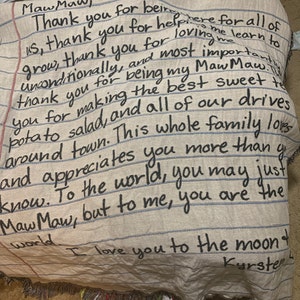 MawMaw,
Thank you for being here for all of
us, thank you for helping me learn to
grow, thank you for loving me
unconditionally, and most importantly
thank you for being my MawMaw.
you for making the best sweet
potato salad, and all of our drives
around town. This whole family loves
and appreciates you more than
know. To the world, you may just
MawMaw, but to me, you are the
world
I love you to the moon &
Kursten